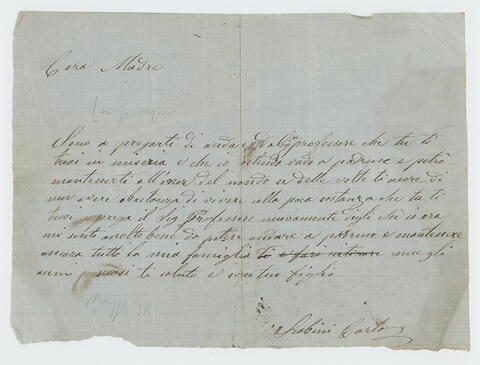 Cara Madre
Sono a pregarti di andare dal Sig professore che tu ti
trovi in miseria e che io esendo vado a padrone e potrò
mantenerti del mondo se delle volte ti
non avere abastanza di vivere colla poca sostanza che tu ti
trovi prega il Sig Professore nuovamente digli che io ora
mi sento molto bene da potere andare a padrone e mantenere
ancora tutta la mia famiglia come gli
anni passati ti saluto e sono tuo figlio
Scabini Carlo